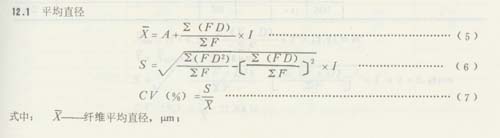 12.1 平均直径
X̄ = A + Σ(FD)/ΣF × I ……………………………(5)
S = √(Σ(FD²)/ΣF - [Σ(FD)/ΣF]²) × I ……………………………(6)
CV(%) = S/X̄ ……………………………(7)
式中: X̄——纤维平均直径, μm;